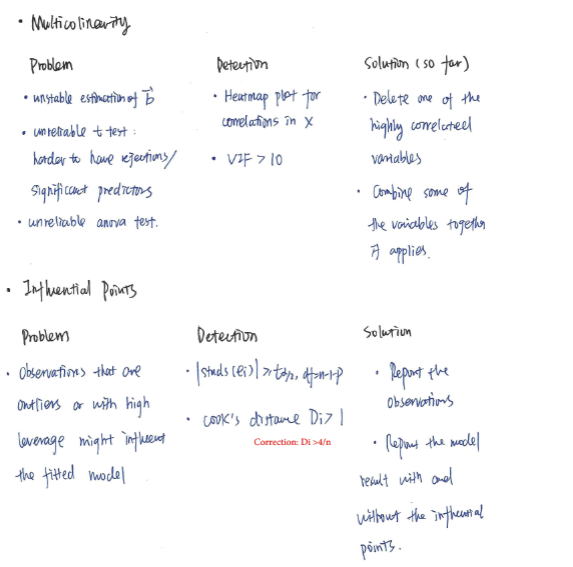 • Multicolinearity
Problem
• unstable estimation of b
• unreliable t test:
harder to have rejections/
significant predictors
• unreliable anova test.
Detection
• Heatmap plot for
correlations in X
• VIF > 10
Solution (so far)
• Delete one of the
highly correlated
variables
• Combine some of
the variables together
if applies.
• Influential Points
Problem
• Observations that are
outliers or with high
leverage might influent
the fitted model
Detection
• |studs(ei)| ≥ tα/2, df=n-1-p
• COOK's distance Di > 1
Correction: Di >4/n
Solution
• Report the
observations
• Report the model
result with and
without the influential
points.